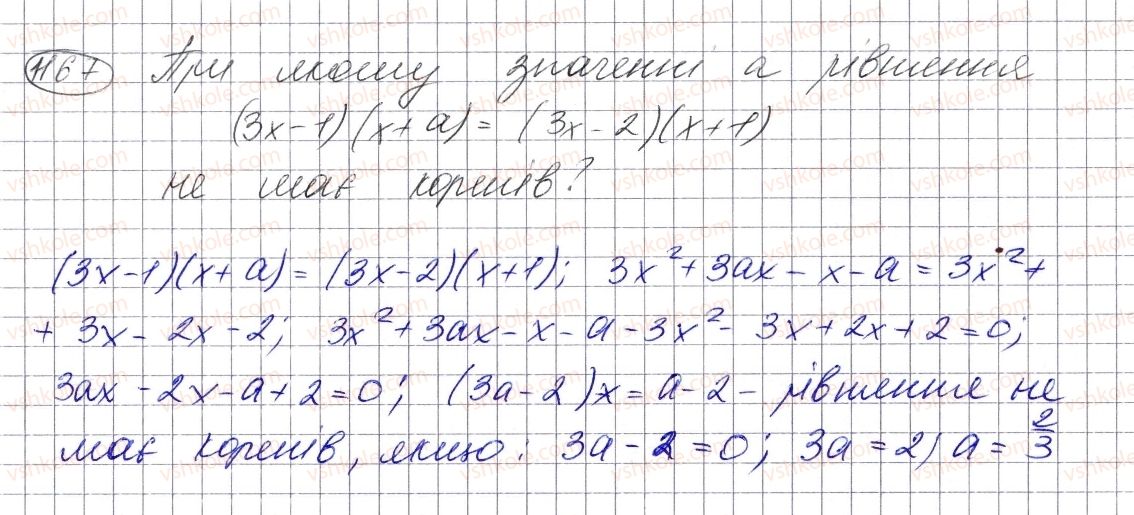 1167 При якому значенні a рівняння
(3x-1)(x+a) = (3x-2)(x+1)
не має коренів?
(3x-1)(x+a) = (3x-2)(x+1); 3x²+3ax-x-a = 3x²+
+3x-2x-2; 3x²+3ax-x-a-3x²-3x+2x+2=0;
3ax-2x-a+2=0; (3a-2)x=a-2 - рівняння не
має коренів, якщо: 3a-2=0; 3a=2; a=2/3